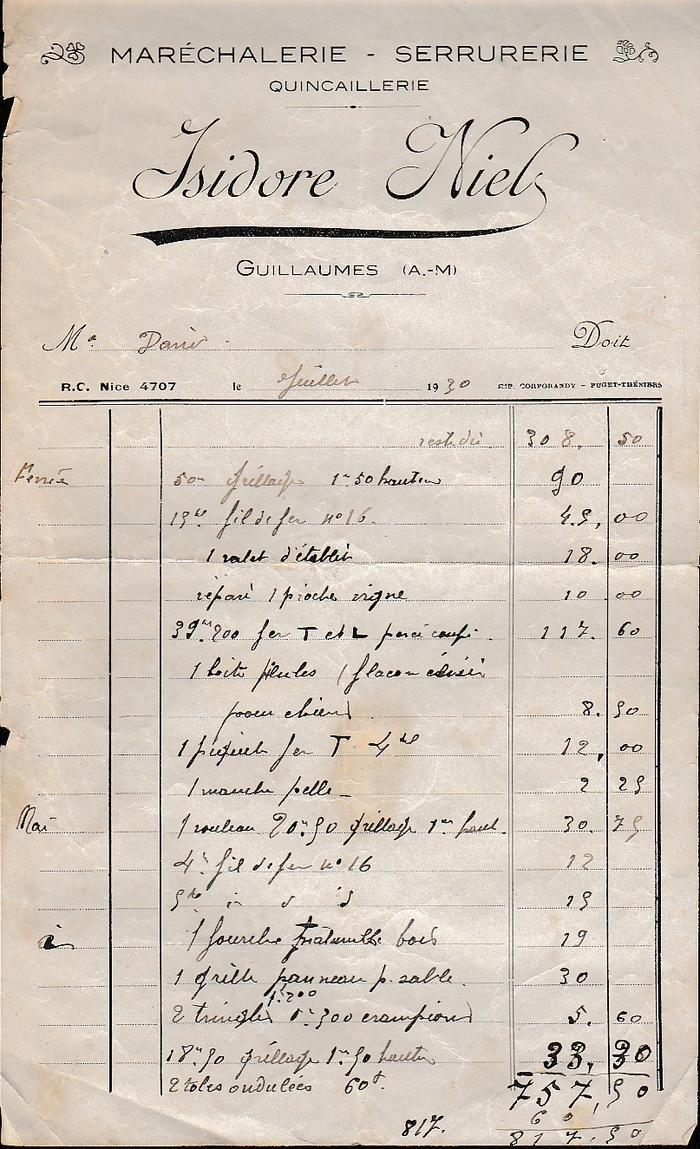 MARÉCHALERIE - SERRURERIE
QUINCAILLERIE
Isidore Niel
GUILLAUMES (A.-M)
Mr Doit
R.C. Nice 4707 le Juillet 1930 IMP. CORPORANDY - PUGET-THÉNIERS
reste dû 308, 50
50m grillage 1m50 hauteur 90
15ks fil de fer no 16. 45,00
1 valet d'établit 18.00
réparé 1 pioche vigne 10.00
39m200 fer T et L percé coupé. 117.60
1 boite pilules 1 flacon
pour chiens. 8.50
1 piquet fer T 4 12,00
1 manche pelle 2 25
Mai 1 rouleau 20m50 grillage 1m haut. 30.75
4k fil de fer no 16 12
5ks 15
1 fourche bois 19
1 grille panneau p. sable. 30
1m200
2 tringles 300 crampions 5.60
18m50 grillage 1m50 hauteur 33,30
2 toles ondulées 60f. 757,50
60
817. 817.50